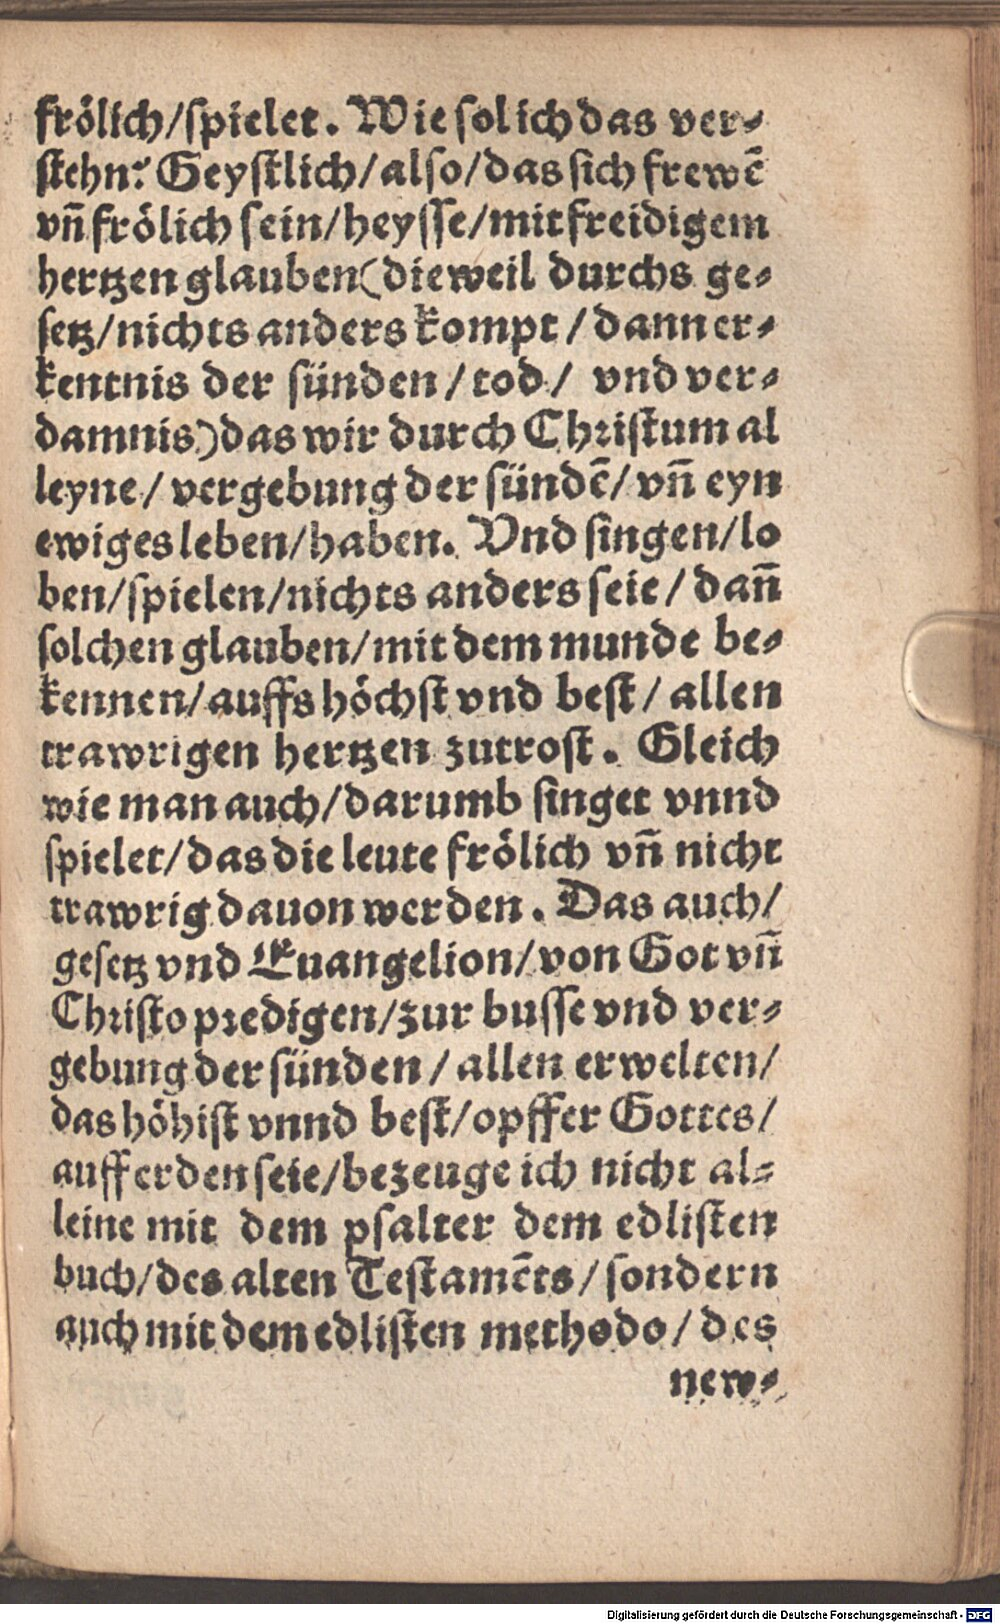 frölich/spielet. Wie sol ich das ver-
stehn? Geystlich/also/das sich frewē
vñ frölich sein/heysse/mit freidigem
hertzen glauben(dieweil durchs ge-
setz/nichts anders kompt/dann er-
kentnis der sünden/tod/ vnd ver-
damnis)das wir durch Christum al
leyne/vergebung der sündē/vñ eyn
ewiges leben/haben. Vnd singen/lo
ben/spielen/nichts anders seie/dañ
solchen glauben/mit dem munde be-
kennen/auffs höchst vnd best/allen
trawrigen hertzen zutrost. Gleich
wie man auch/darumb singet vnnd
spielet/das die leute frölich vñ nicht
trawrig dauon werden. Das auch/
gesetz vnd Euangelion/von Got vñ
Christo predigen/zur busse vnd ver-
gebung der sünden/allen erwelten/
das höhist vnnd best/opffer Gottes/
auff erden seie/bezeuge ich nicht al-
leine mit dem psalter dem edlisten
buch/des alten Testamēts/sondern
auch mit dem edlisten methodo/des
new-
Digitalisierung gefördert durch die Deutsche Forschungsgemeinschaft - DFG